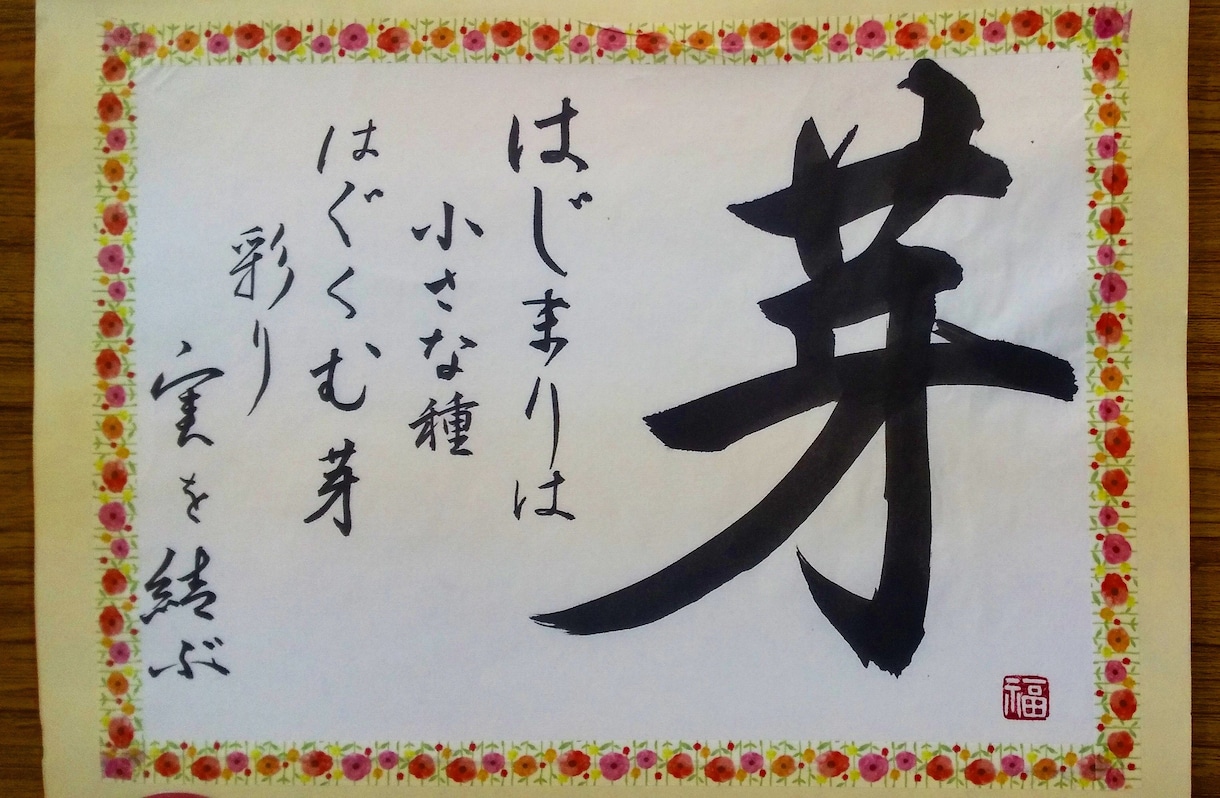 芽
はじまりは
小さな種
はぐくむ芽
彩り
実を結ぶ
福